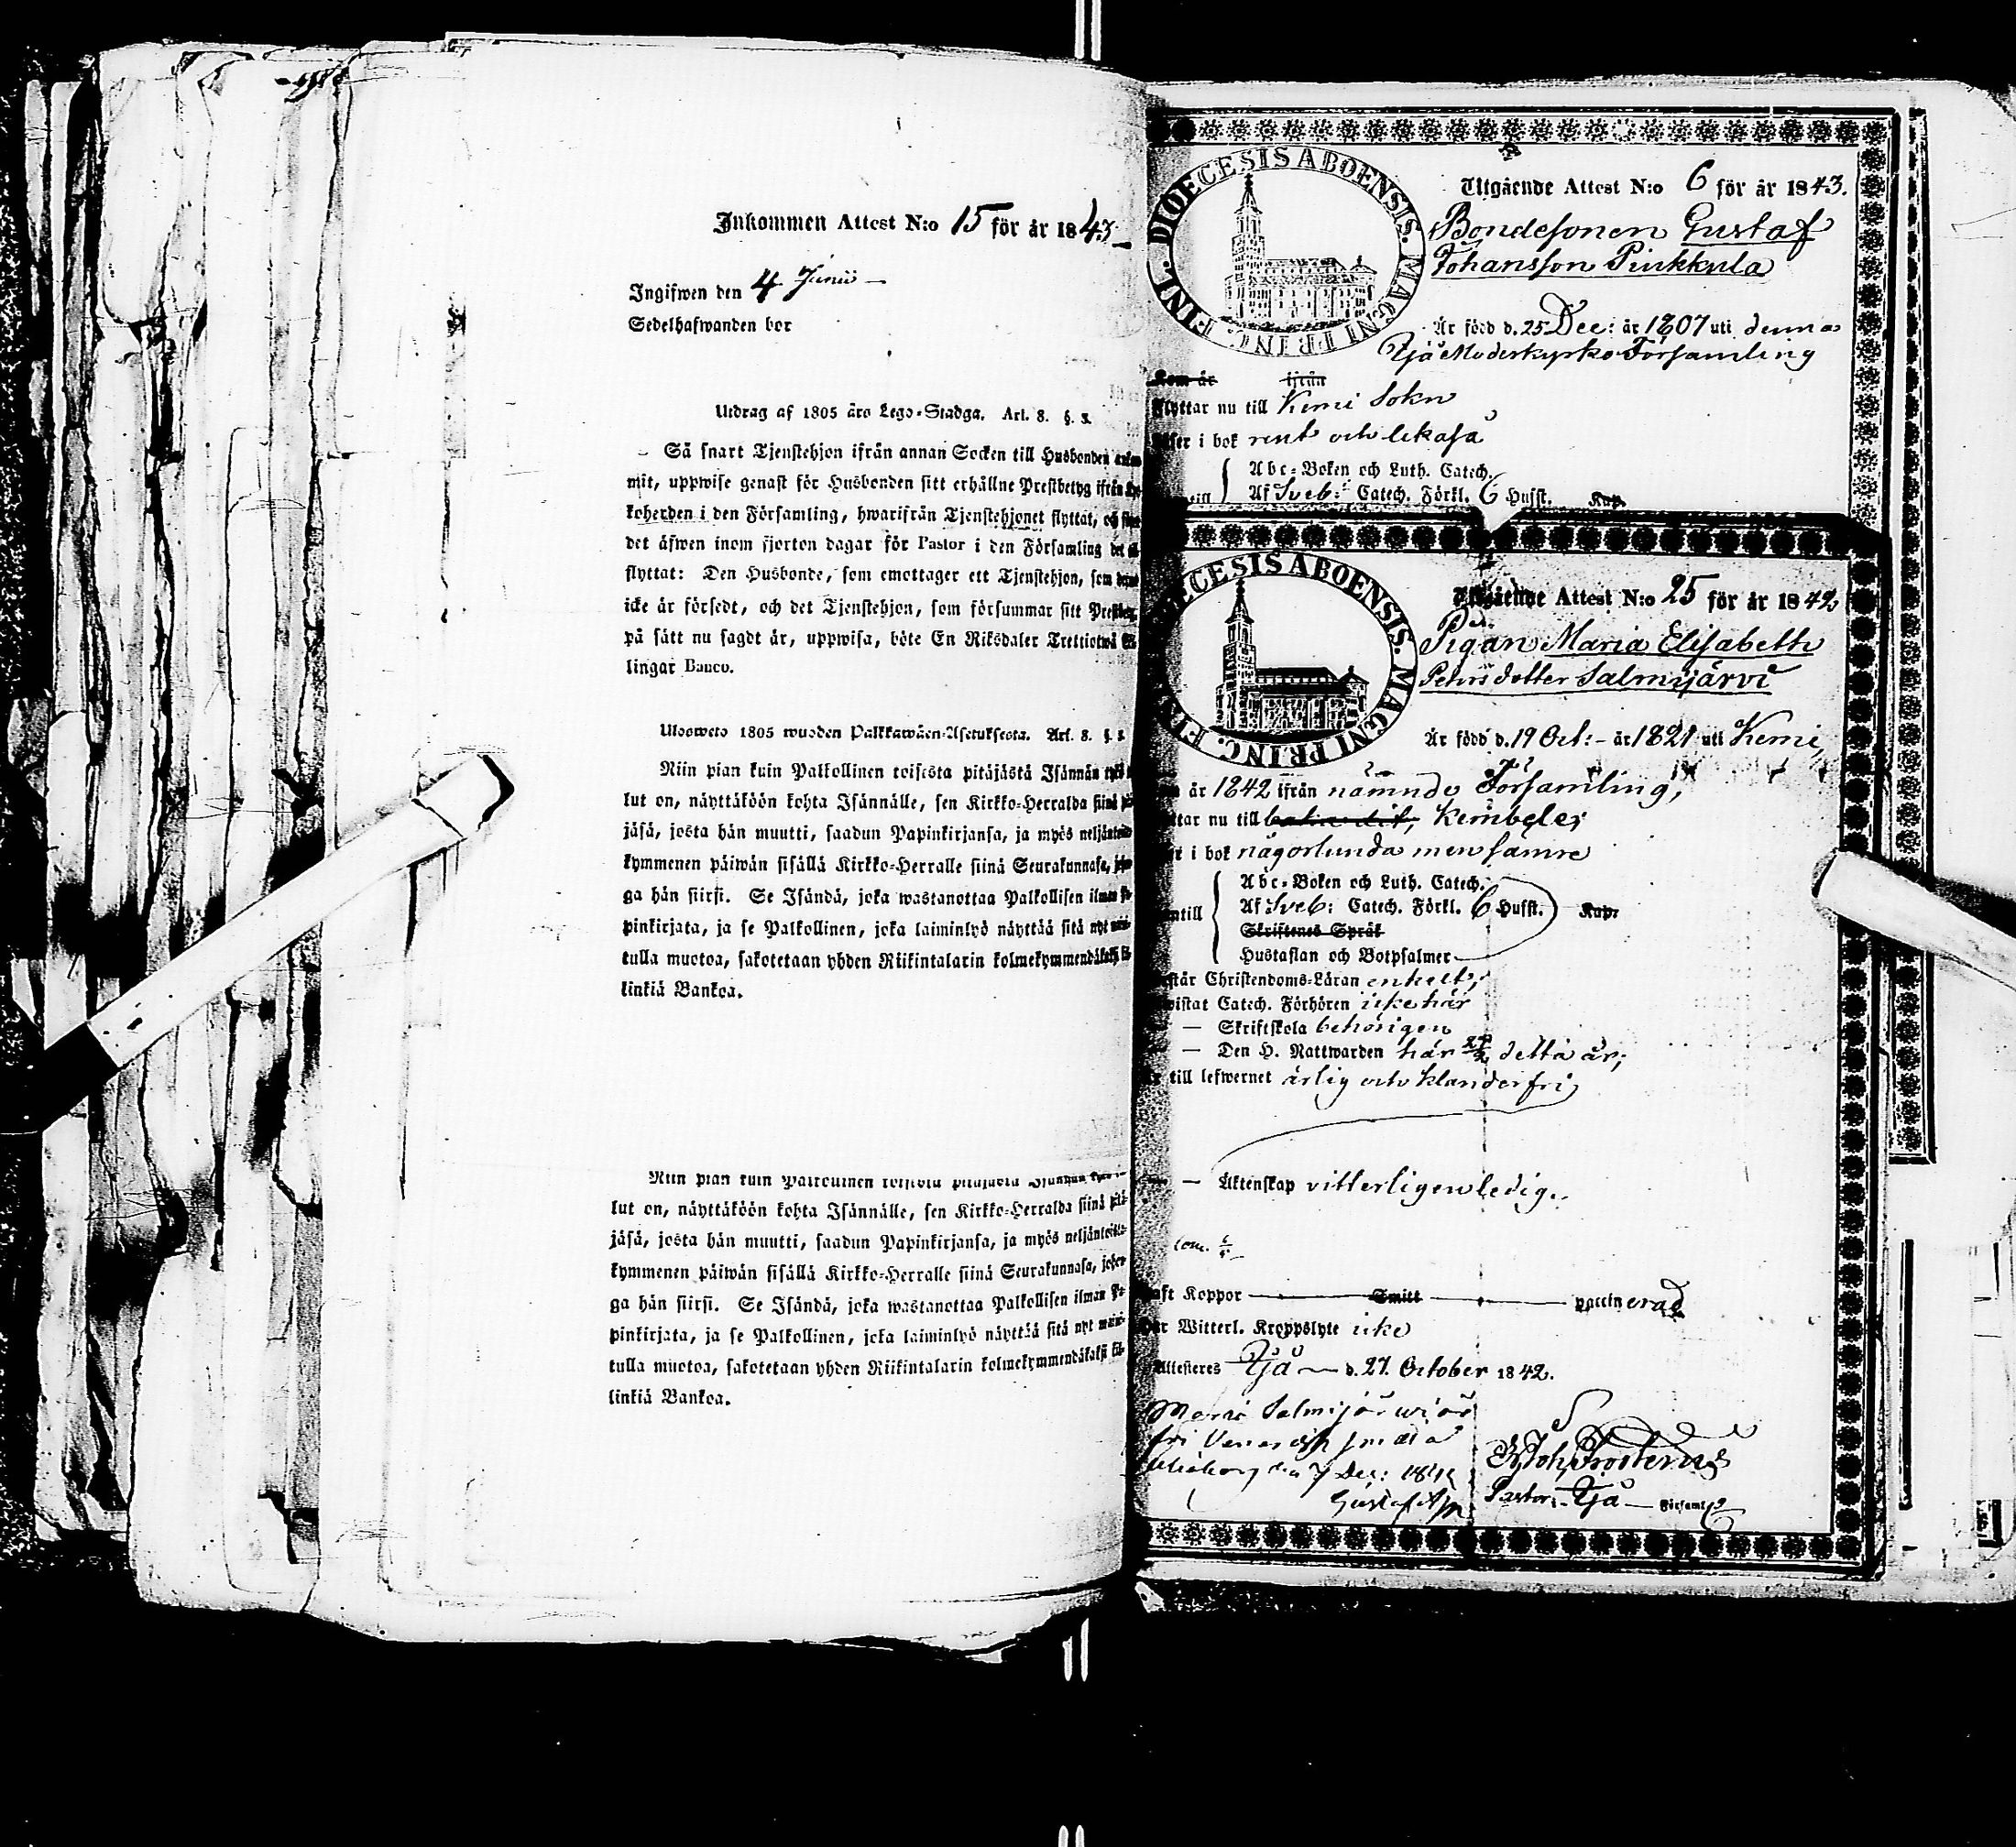 Inkommen Attest N:o 15 för år 1843
Ingifwen den 4 Junii
Sedelhafwanden bor
Utdrag af 1805 års Lego-Stadga. Art. 8. §. 3.
Så snart Tjenstehjon ifrån annan Socken till Husbonden
mit, uppwise genast för Husbonden sitt erhållne Prestbetyg ifrån
koherden i den Församling, hwarifrån Tjenstehjonet flyttat, och
det äfwen inom fjorton dagar för Pastor i den Församling det
flyttat: Den Husbonde, som emottager ett Tjenstehjon, som
icke är försedt, och det Tjenstehjon, som försummar sitt
på sätt nu sagdt är, uppwisa, böte En Riksdaler Trettiotwå
lingar Banco.
Ulosweto 1805 wuoden Palkkawäen-Asetuksesta. Art. 8. §. 3.
Niin pian kuin Palkollinen toisesta pitäjästä Isännän
lut on, näyttäköön kohta Isännälle, sen Kirkko-Herralda siinä
jäsä, josta hän muutti, saadun Papinkirjansa, ja myös
kymmenen päiwän sisällä Kirkko-Herralle siinä Seurakunnasa,
ga hän siirsi. Se Isändä, joka wastanottaa Palkollisen ilman
pinkirjata, ja se Palkollinen, joka laiminlyö näyttää sitä nyt
tulla muotoa, sakotetaan yhden Riikintalarin
linkiä Bankoa.
Niin pian kuin Palkollinen toisesta pitäjästä Isännän
lut on, näyttäköön kohta Isännälle, sen Kirkko-Herralda siinä pitä-
jäsä, josta hän muutti, saadun Papinkirjansa, ja myös
kymmenen päiwän sisällä Kirkko-Herralle siinä Seurakunnasa, johon-
ga hän siirsi. Se Isändä, joka wastanottaa Palkollisen ilman Pa-
pinkirjata, ja se Palkollinen, joka laiminlyö näyttää sitä nyt
tulla muotoa, sakotetaan yhden Riikintalarin kolmekymmendäkaksi kil-
linkiä Bankoa.
DIOECESIS ABOENSIS. MAGNI PRINC. FINL.
Utgående Attest N:o 6 för år 1843.
Bondesonen Gustaf
Johansson Piukkula
Är född d. 25 Dec: år 1807 uti denna
Ijå Moderkyrko Församling
Kom år ifrån
Flyttar nu till Kemi Sokn
Läser i bok rent och lekaså
Abc-Boken och Luth. Catech.
till Af Sveb: Catech. Förkl. 6 Hufst. Kap.
DIOECESIS ABOENSIS. MAGNI PRINC. FI
Utgående Attest N:o 25 för år 1842
Pigan Maria Elisabeth
Pehrsdotter Salmijärvi
Är född d. 19 Oct: år 1821 uti Kemi,
år 1842 ifrån nämnde Församling,
ttar nu till Kembele;
i bok någorlunda men sämre
Abc-Boken och Luth. Catech.
ntill Af Sveb: Catech. Förkl. 6 Hufst. Kap.
Skriftenes Språk
Hustaflan och Botpsalmer
står Christendoms-Läran enkelt;
wistat Catech. Förhören icke här
— Skriftskola behörigen
— Den H. Nattwarden här detta år;
till lefwernet ärlig och klanderfri;
— Äktenskap vitterligen ledig.
aft Koppor Smitt vaccinerad
Witterl. Kroppslyte icke
Attesteres Ijå d. 27. October 1842.
Maria Salmijärwi är
fri
Uleåborg den 7 Dec: 1842
Gustaf
Joh. Frosterus
Pastor i Ijå Församl